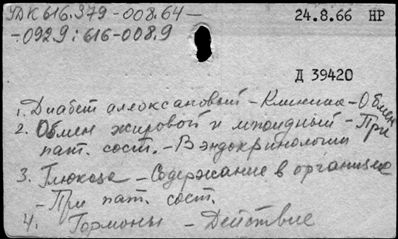 УДК 616.379-008.64-
-092.9:616-008.9
24.8.66 НР
Д 39420
1. Диабет аллоксановый - Клиника - Обмен
2. Обмен жировой и липоидный - При
пат. сост. - В эндокринологии
3. Глюкоза - Содержание в организме
- При пат. сост.
4. Гормоны - Действие